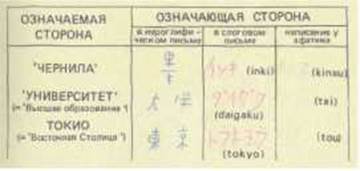 ОЗНАЧАЕМАЯ СТОРОНА
ОЗНАЧАЮЩАЯ СТОРОНА
в иероглифи-
ческом письме
в слоговом
письме
написание у
афатика
'ЧЕРНИЛА'
(inki)
(kinsu)
'УНИВЕРСИТЕТ'
(= "Высшее образование")
大 学
(daigaku)
(tai)
ТОКИО
(= "Восточная Столица")
東 京
(tokyo)
(tou)